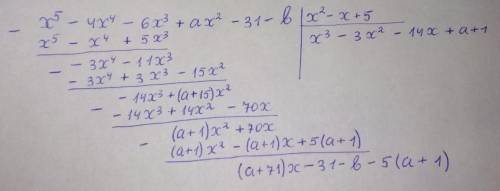 - x⁵ - 4x⁴ - 6x³ + ax² - 31 - b | x² - x + 5
x⁵ - x⁴ + 5x³ | x³ - 3x² - 14x + a + 1
- - 3x⁴ - 11x³
- 3x⁴ + 3x³ - 15x²
- - 14x³ + (a+15)x²
- 14x³ + 14x² - 70x
- (a+1)x² + 70x
(a+1)x² - (a+1)x + 5(a+1)
(a+71)x - 31 - b - 5(a+1)